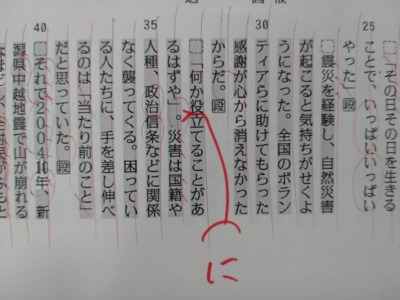 25
□「その日その日を生きる
ことで、いっぱいいっぱい
やった」段
□震災を経験し、自然災害
が起こると気持ちがせくよ
うになった。全国のボラン
30
ティアらに助けてもらった
感謝が心から消えなかった
からだ。段
□「何か役立てることがあ
に
るはずや」。災害は国籍や
35
人種、政治信条などに関係
なく襲ってくる。困ってい
る人たちに、手を差し伸べ
るのは「当たり前のこと」
だと思っていた。段
40
□それで２００４10年、新
潟県中越地震で山が崩れる